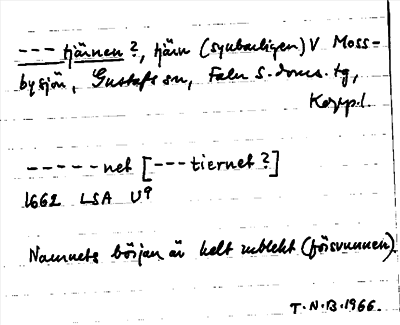 --- tjärnen?, tjärn (synbarligen) V Moss-
bysjön, Gustafs sn, Falu s. doms. tg,
Kopp.l.
-----net [---tiernet?]
1662 LSA U9
Namnets början är helt utblekt (försvunnen).
T.N.B.1966.